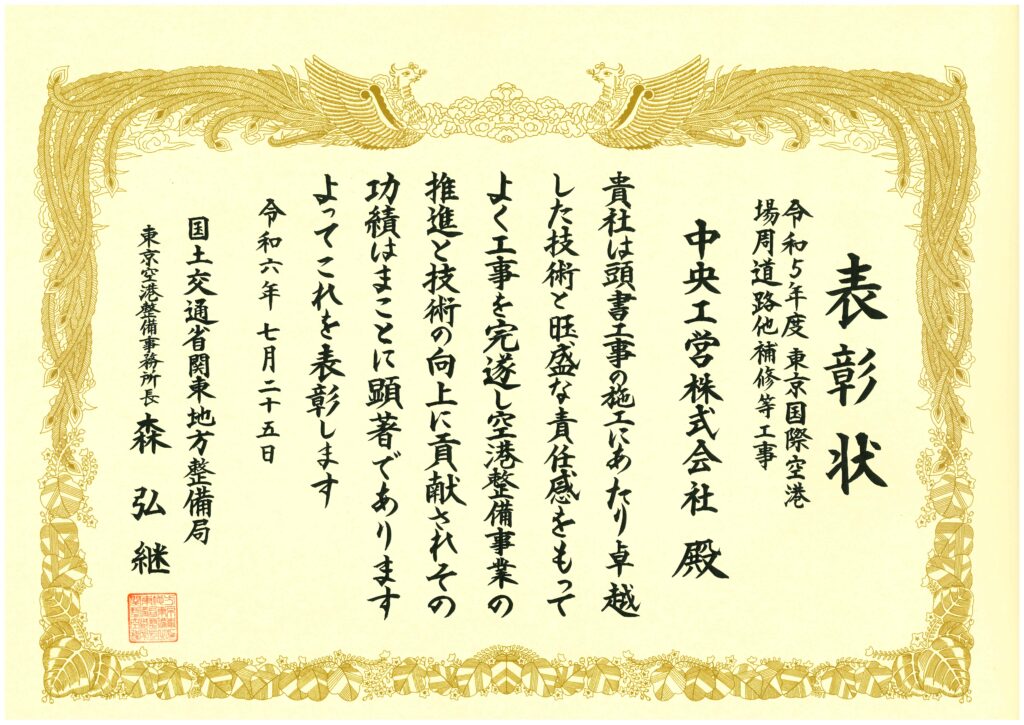 表彰状
令和5年度 東京国際空港
場周道路他補修等工事
中央工営株式会社 殿
貴社は頭書工事の施工にあたり卓越
した技術と旺盛な責任感をもって
よく工事を完遂し空港整備事業の
推進と技術の向上に貢献されその
功績はまことに顕著であります
よってこれを表彰します
令和六年 七月二十五日
国土交通省関東地方整備局
東京空港整備事務所長 森 弘継